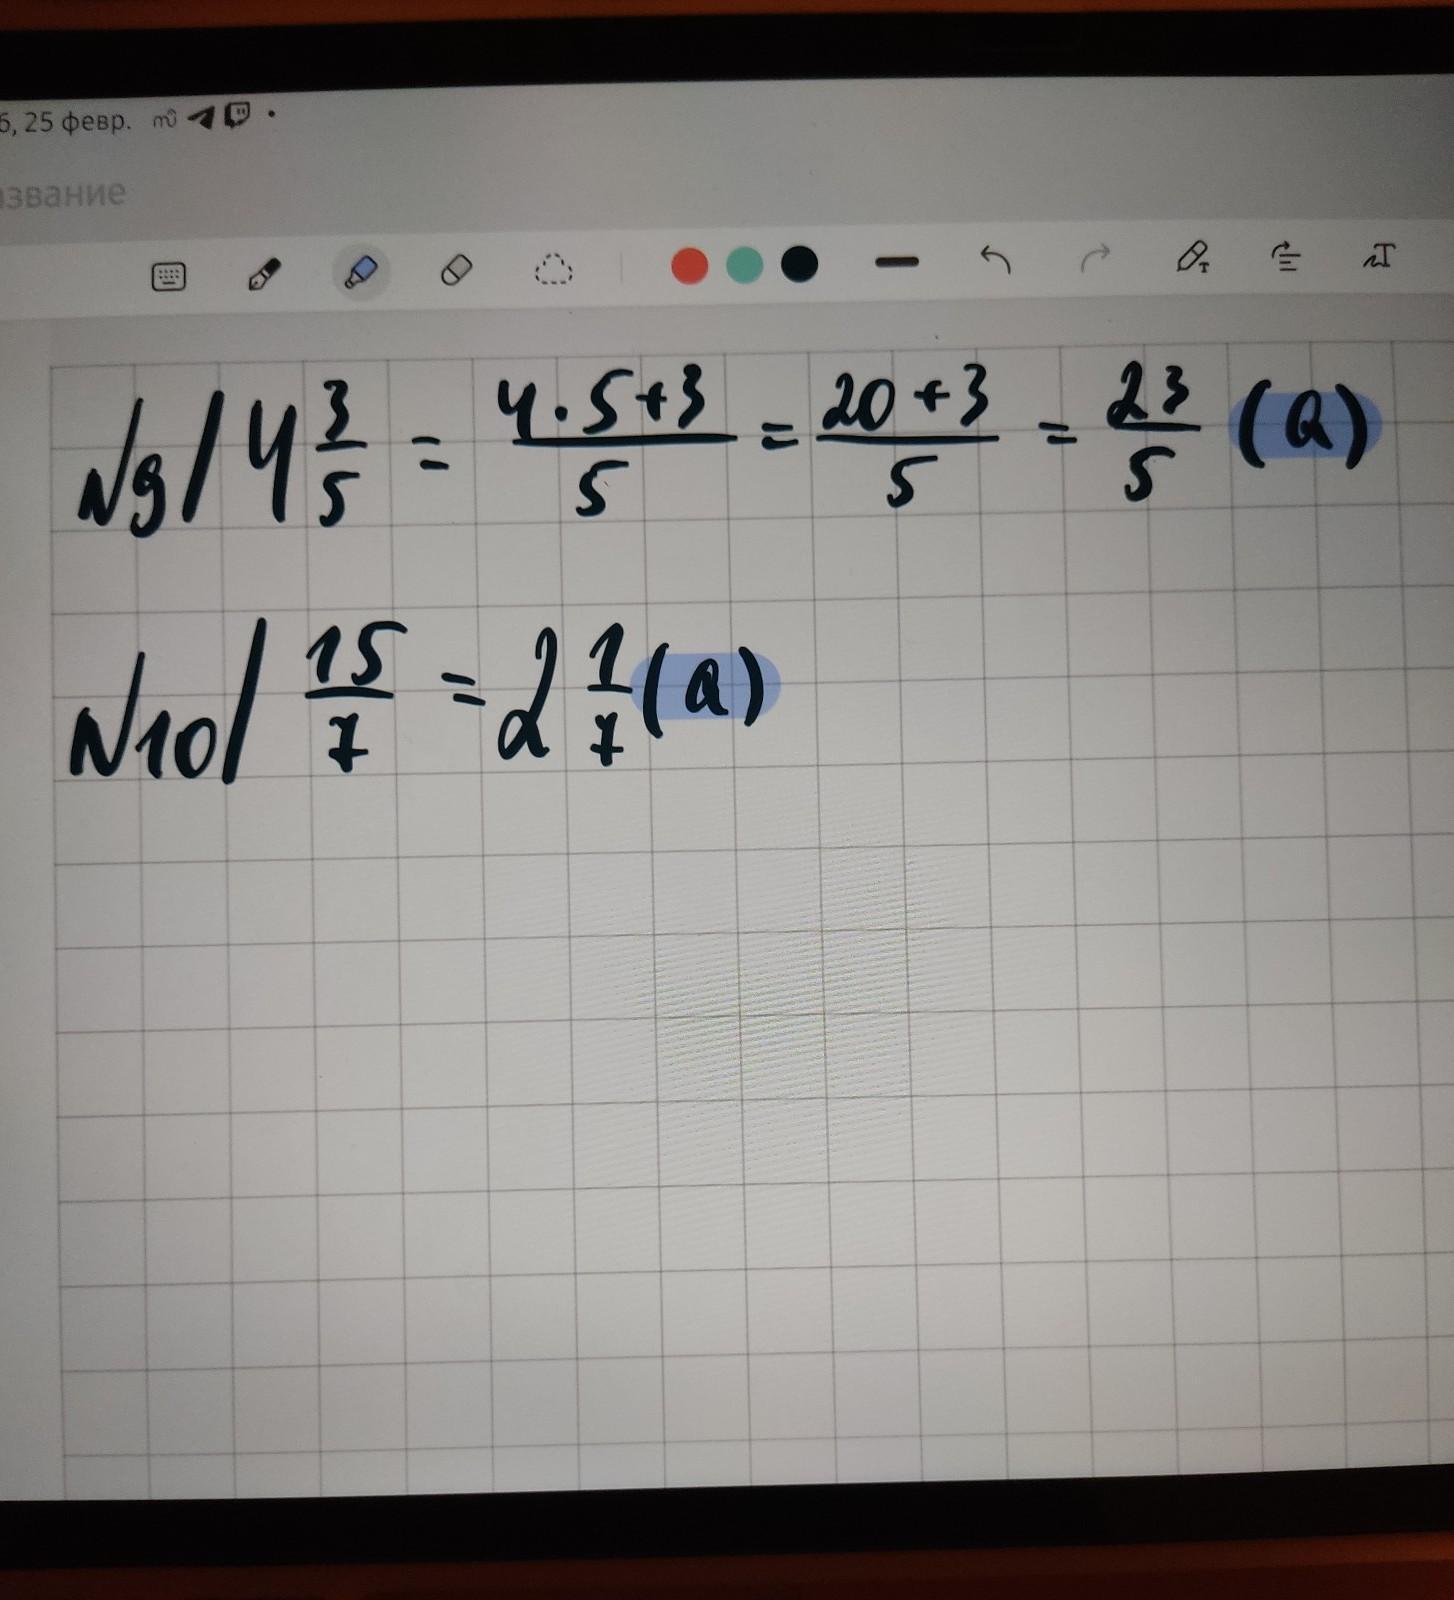 б, 25 февр.
азвание
N9/ 4 3/5 = 4·5+3/5 = 20+3/5 = 23/5 (а)
N10/ 15/7 = 2 1/7 (а)